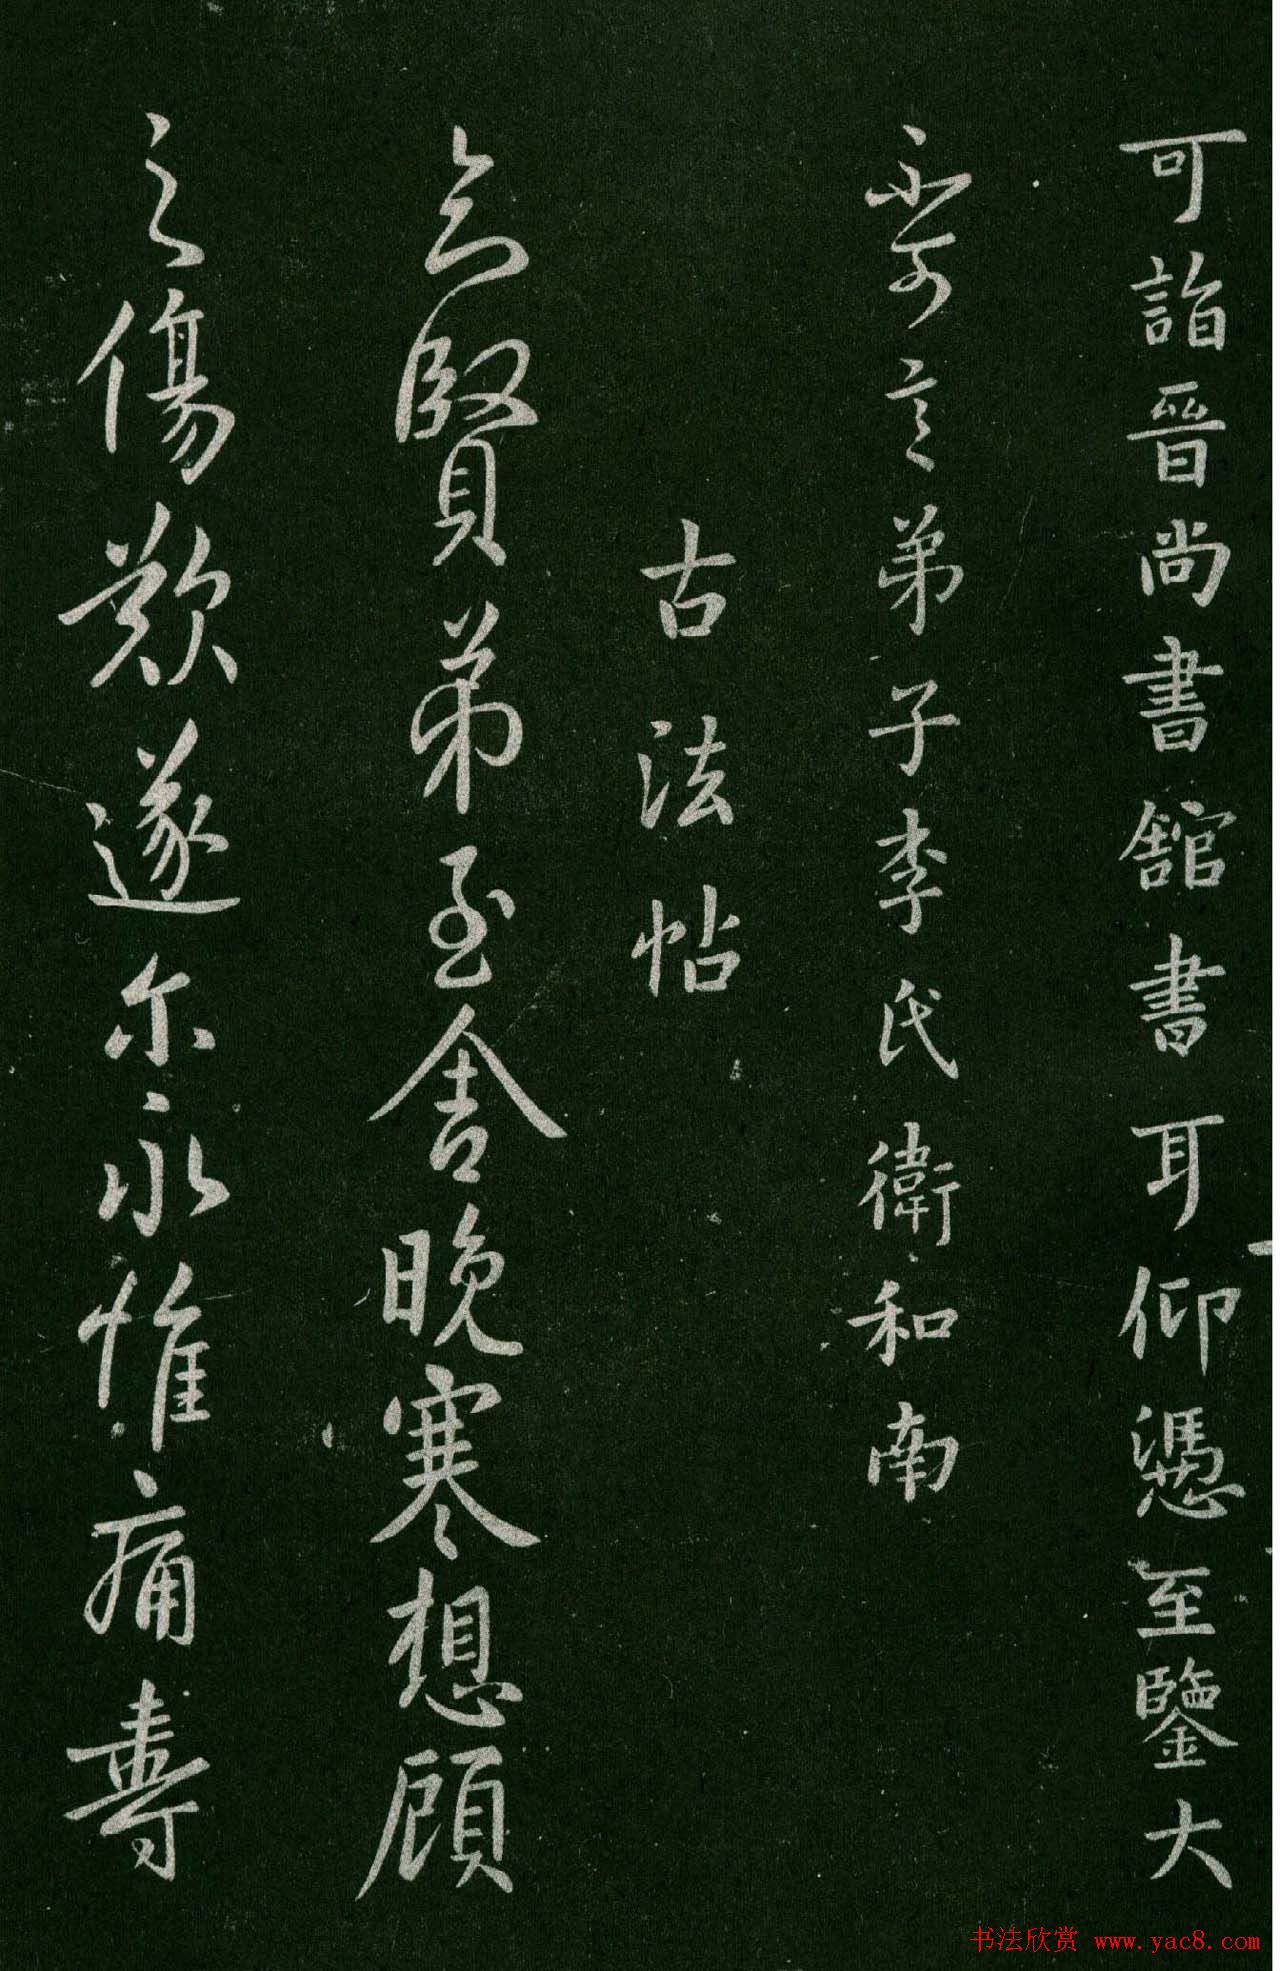 可詣晉尚書館書耳仰憑至鑒大
不可言弟子李氏衛和南
古法帖
知賢弟至舍晚寒想顧
之傷歎遂尔永惟痛壽
书法欣赏 www.yac8.com